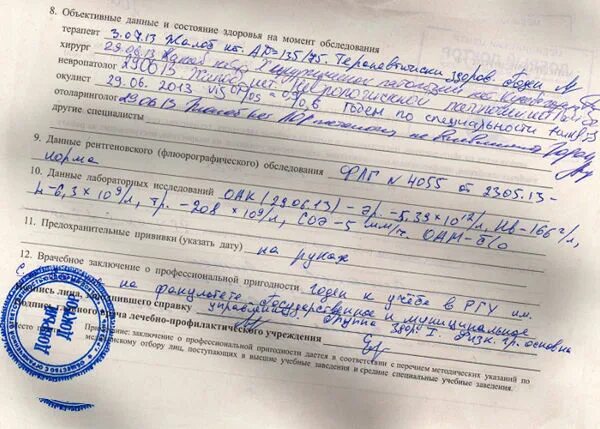 8. Объективные данные и состояние здоровья на момент обследования
терапевт 3.07.13 Жалоб нет. АД=135/75. Терапевтически здоров. Годен
хирург 29.06.13 Жалоб нет. Хирургической патологии не
невропатолог 290613 Жалоб нет. Неврологической патологии
окулист 29.06.2013 Vis OD/OS = 0,9/0,6 годен по специальности
отоларинголог 29.06.13 Жалоб нет ЛОР патологии не выявлено
другие специалисты
9. Данные рентгеновского (флюорографического) обследования ФЛГ N 4055 от 23.05.13 -
норма
10. Данные лабораторных исследований ОАК (29.06.13) - Эр. - 5,39 х 10¹²/л, Нb - 166 г/л,
L - 6,3 х 10⁹/л, Тр. - 208 х 10⁹/л, СОЭ - 5 мм/ч. ОАМ - б/о
11. Предохранительные прививки (указать дату) на руках
12. Врачебное заключение о профессиональной пригодности годен к учёбе в РГУ им.
на факультете „Государственное и муниципальное
Подпись лица, заполнившего справку управление" Группа здор. I. Физк. гр. основная
Подпись главного врача лечебно-профилактического учреждения
Место печати
Примечание: заключение о профессиональной пригодности дается в соответствии с перечнем методических указаний по
медицинскому отбору лиц, поступающих в высшие учебные заведения и средние специальные учебные заведения.
ДОБРЫЙ
ДОКТОР